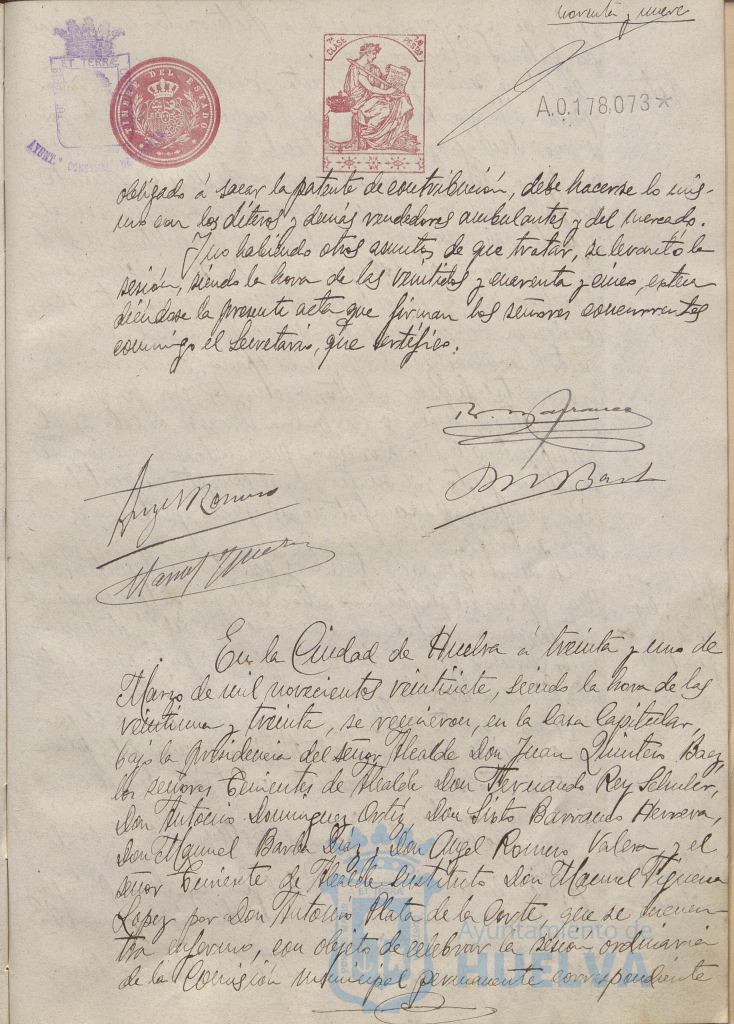 noventa y nueve
ET TERRÆ
TIMBRE DEL ESTADO
CLASE
PESETAS
A.0.178.073*
AYUNT.º CONSTITU
obligado á sacar la patente de contribución, debe hacerse lo mis-
mo con los diteros y demás vendedores ambulantes y del mercado.
Y no habiendo otros asuntos de que tratar, se levantó la
sesión, siendo la hora de las veintidos y cuarenta y cinco, exten
diéndose la presente acta que firman los señores concurrentes
conmigo el Secretario, que certifico.
Angel Romero
M Barba
Manuel Figueroa
En la Ciudad de Huelva á treinta y uno de
Marzo de mil novecientos veintisiete, siendo la hora de las
veintiuna y treinta, se reunieron, en la Casa Capitular,
bajo la presidencia del señor Alcalde Don Juan Quintero Baez,
los señores Tenientes de Alcalde Don Fernando Rey Schuler,
Don Antonio Dominguez Ortiz, Don Sixto Barranco Herrera,
Don Manuel Barba Diaz y Don Angel Romero Valera, y el
señor Teniente de Alcalde sustituto Don Manuel Figueroa
Lopez por Don Antonio Plata de la Corte, que se encuen
tra enfermo, con objeto de celebrar la sesión ordinaria
de la Comisión municipal permanente correspondiente
Ayuntamiento de
HUELVA